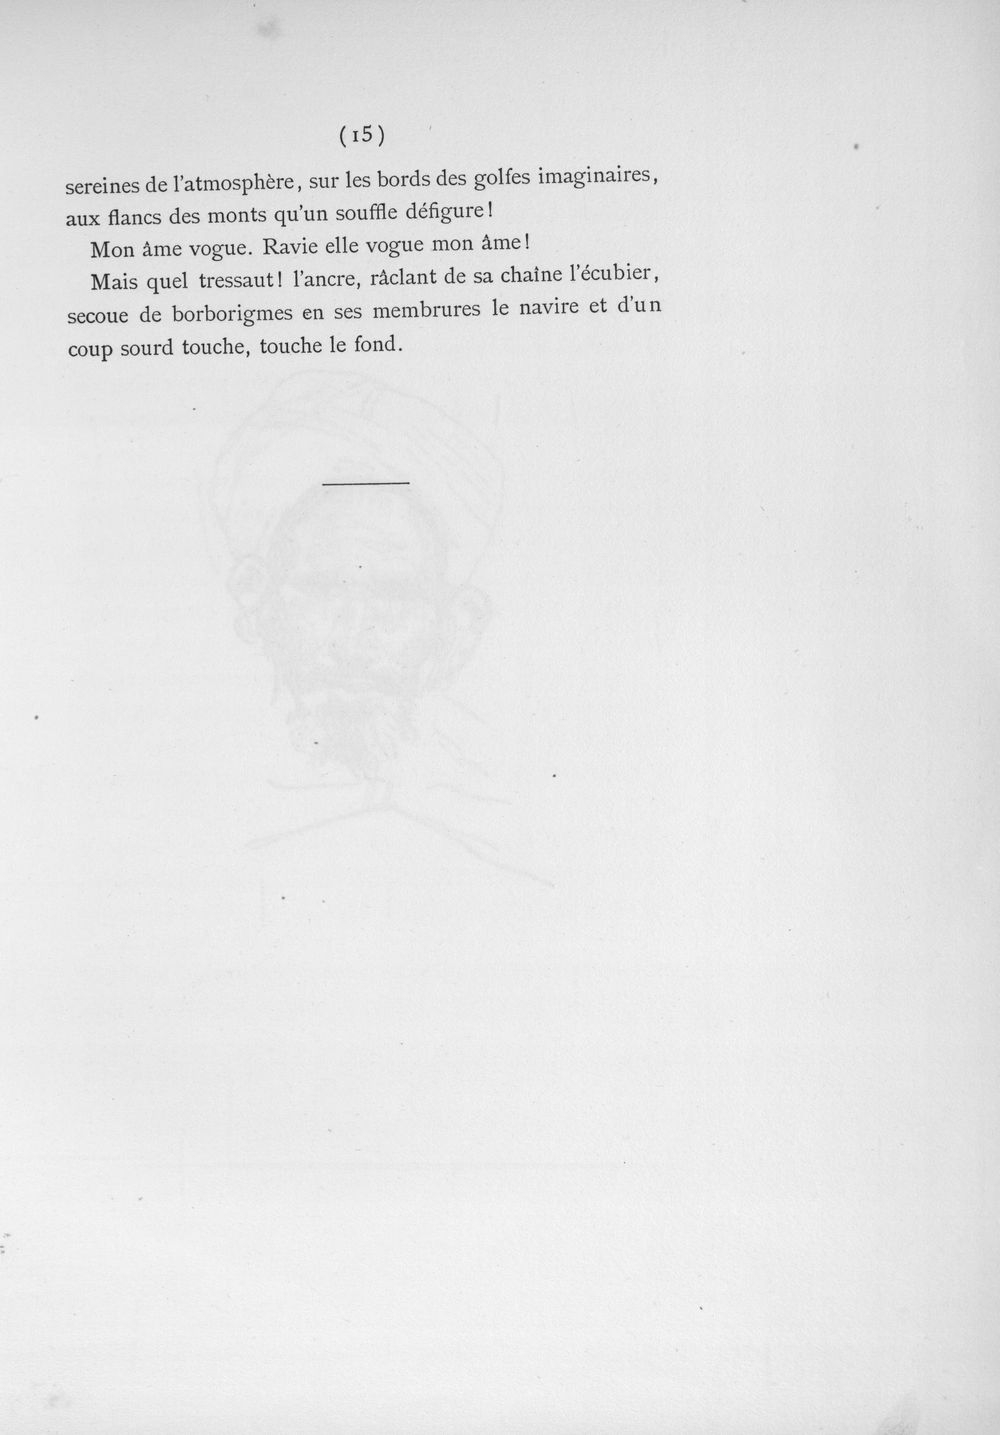 (15)
sereines de l'atmosphère, sur les bords des golfes imaginaires,
aux flancs des monts qu'un souffle défigure!
Mon âme vogue. Ravie elle vogue mon âme!
Mais quel tressaut! l'ancre, râclant de sa chaîne l'écubier,
secoue de borborigmes en ses membrures le navire et d'un
coup sourd touche, touche le fond.